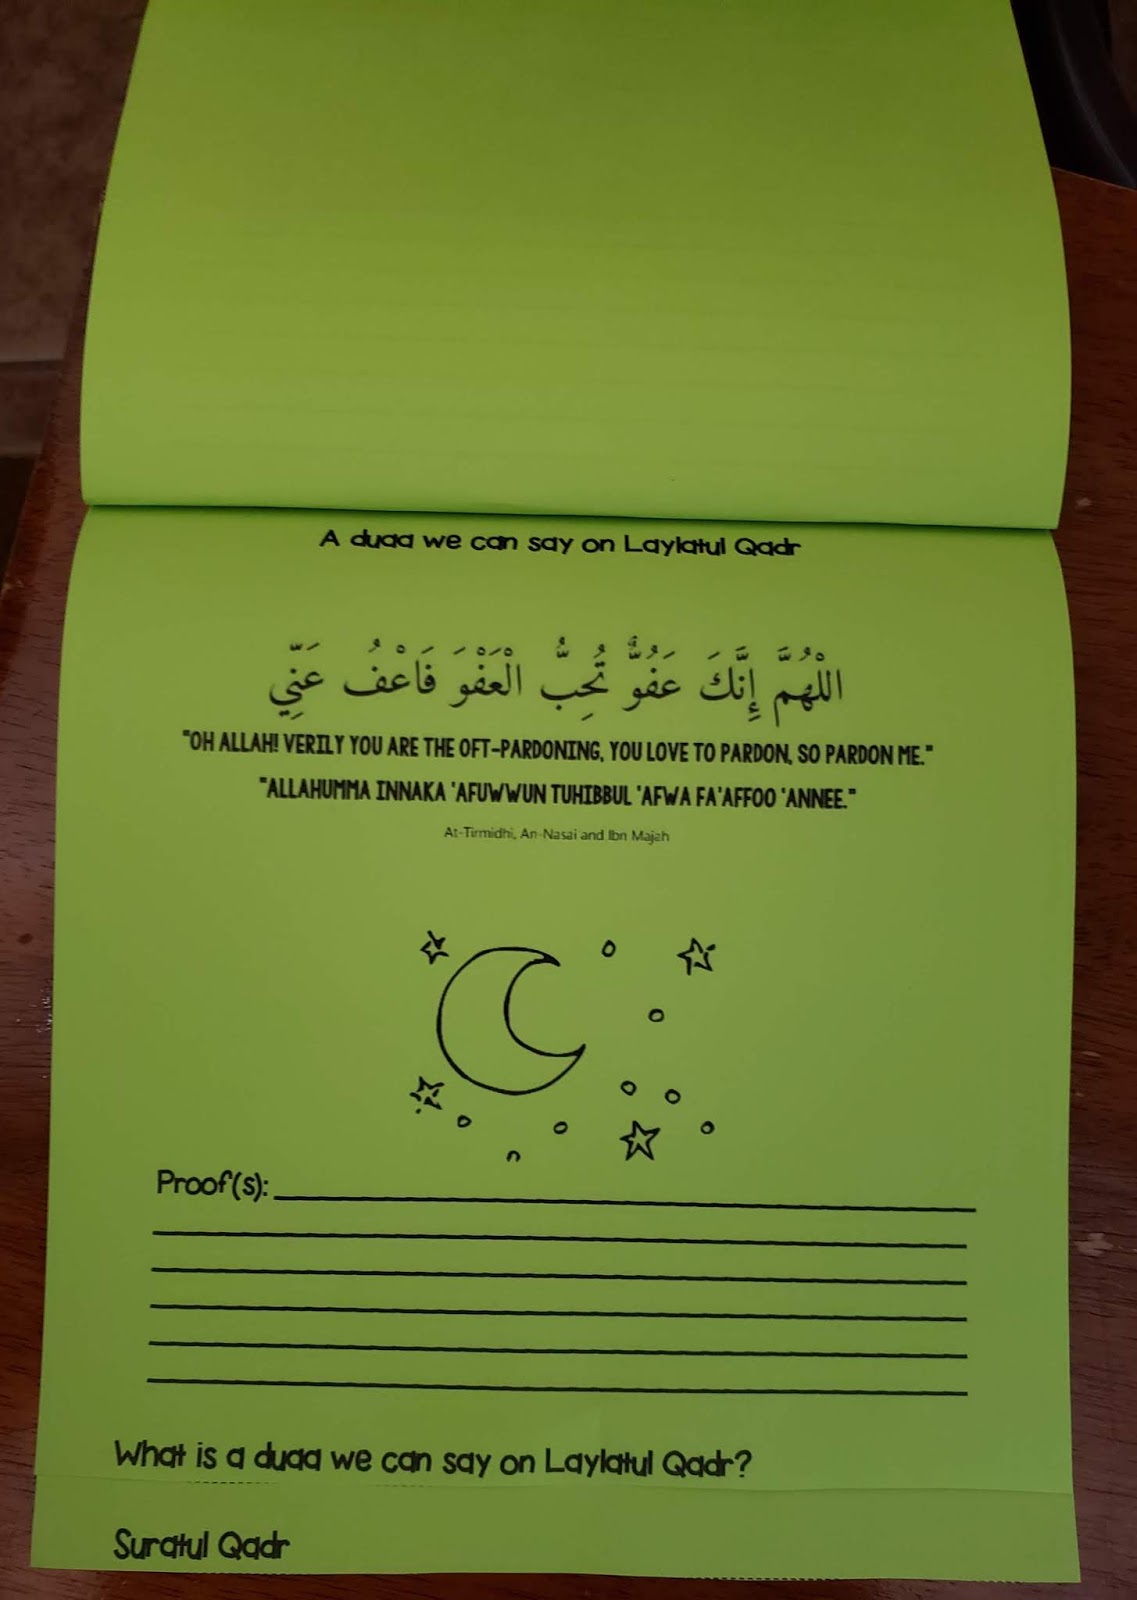 A duaa we can say on Laylatul Qadr
اللْهُمَّ إِنَّكَ عَفُوٌّ تُحِبُّ الْعَفْوَ فَاعْفُ عَنِّي
"OH ALLAH! VERILY YOU ARE THE OFT-PARDONING, YOU LOVE TO PARDON, SO PARDON ME."
"ALLAHUMMA INNAKA 'AFUWWUN TUHIBBUL 'AFWA FA'AFFOO 'ANNEE."
At-Tirmidhi, An-Nasai and Ibn Majah
Proof(s):
What is a duaa we can say on Laylatul Qadr?
Suratul Qadr